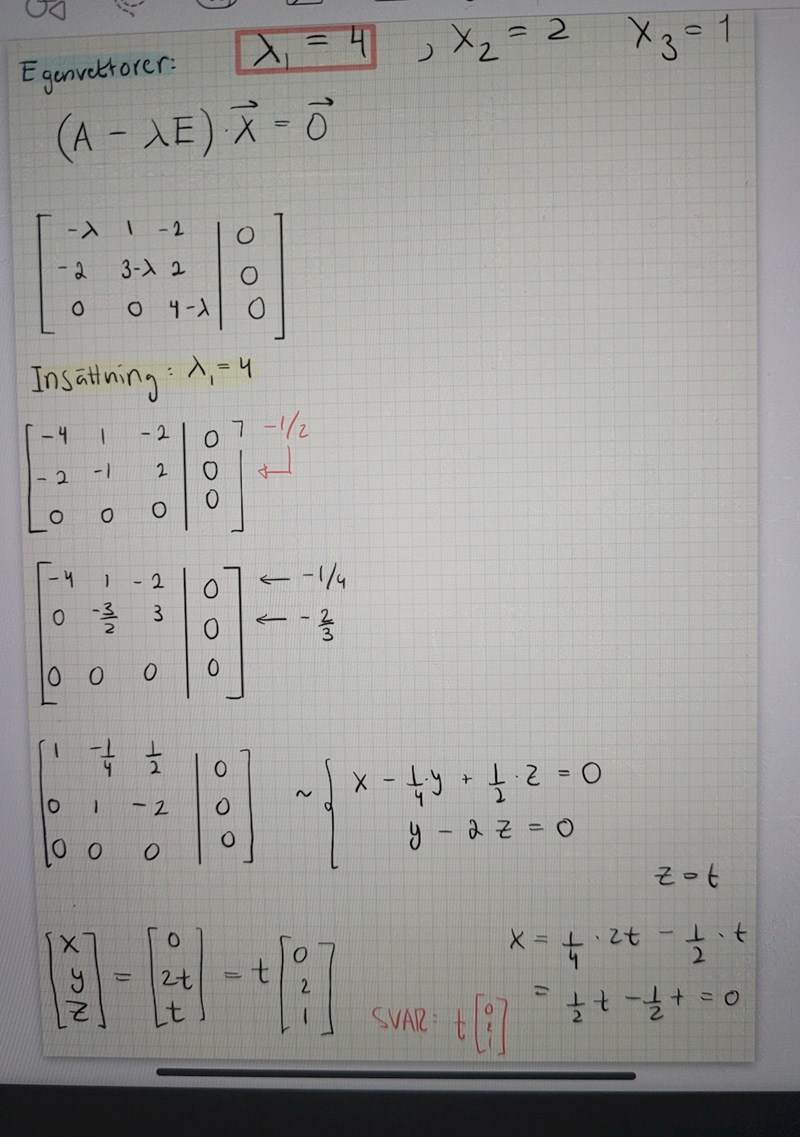 Egenvektorer: λ₁ = 4 , x₂ = 2 x₃ = 1
(A - λE)·x⃗ = 0⃗
[ -λ 1 -2 | 0 ]
[ -2 3-λ 2 | 0 ]
[ 0 0 4-λ | 0 ]
Insättning: λ₁ = 4
[ -4 1 -2 | 0 ] -1/2
[ -2 -1 2 | 0 ] ←
[ 0 0 0 | 0 ]
[ -4 1 -2 | 0 ] ← -1/4
[ 0 -3/2 3 | 0 ] ← -2/3
[ 0 0 0 | 0 ]
[ 1 -1/4 1/2 | 0 ]
[ 0 1 -2 | 0 ]
[ 0 0 0 | 0 ]
~ { x - 1/4·y + 1/2·z = 0
y - 2z = 0
z = t
x = 1/4·2t - 1/2·t
= 1/2t - 1/2t = 0
[x y z] = [0 2t t] = t[0 2 1]
SVAR: t[0 2 1]